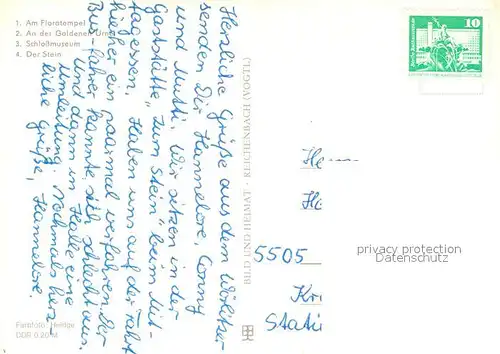 1. Am Floratempel
2. An der Goldenen Urne
3. Schloßmuseum
4. Der Stein
Herzliche Grüße aus dem Wörlitzer
senden Dir Hannelore, Conny
und Mutti. Wir sitzen in der
Gaststätte „zum Stein" beim Mit-
tagessen. Haben uns auf der Fahrt
hierher ein paarmal verfahren. Der
Busfahrer kannte sich schlecht aus.
Und dann in Halle eine
Umleitung. Nochmals herz-
liche Grüße, Hannelore.
Farbfoto: Heilige
DDR 0,20 M
BILD UND HEIMAT · REICHENBACH (VOGTL)
10
He
5505
Kri
Stati
privacy protection
Datenschutz